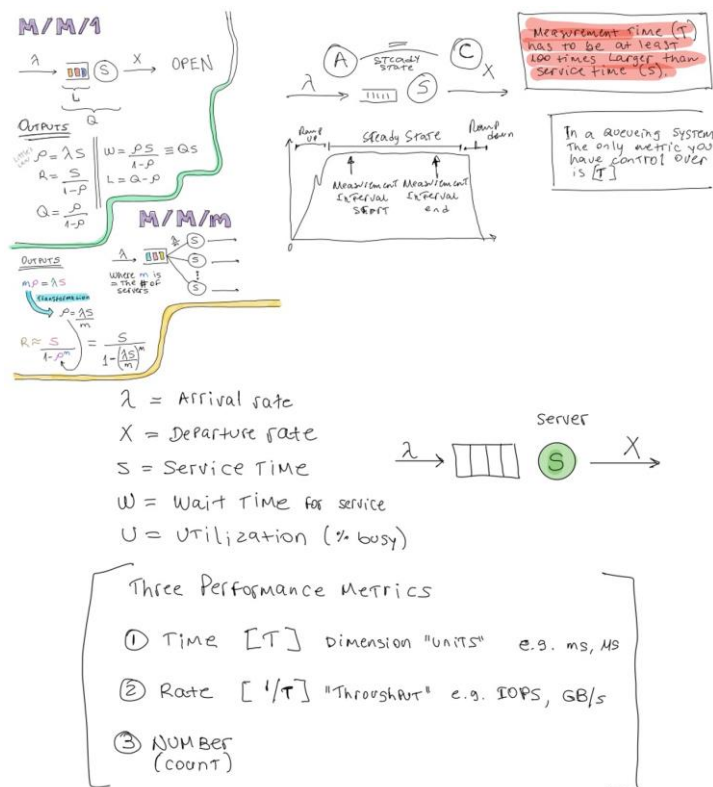 M/M/1
λ S X OPEN
L
Q
OUTPUTS
ρ = λS
R = S/1-ρ
Q = ρ/1-ρ
W = ρS/1-ρ ≡ QS
L = Q-ρ
M/M/m
OUTPUTS
mρ = λS
Transformation
ρ = λS/m
R ≈ S/1-ρ^m = S/1-(λS/m)^m
λ S
S
S
where m is
= the # of
servers
A STEADY STATE C
λ S X
Ramp up Steady State Ramp down
Measurement Interval START
Measurement Interval end
0
Measurement Time (T)
has to be at least
100 times Larger than
service time (S).
In a Queueing System
The only metric you
have control over
is [T]
λ = Arrival rate
X = Departure rate
S = Service Time
W = Wait Time for service
U = Utilization (% busy)
Server
λ S X
Three Performance Metrics
① Time [T] Dimension "units" e.g. ms, µs
② Rate [1/T] "Throughput" e.g. IOPS, GB/s
③ NUMBER
(count)